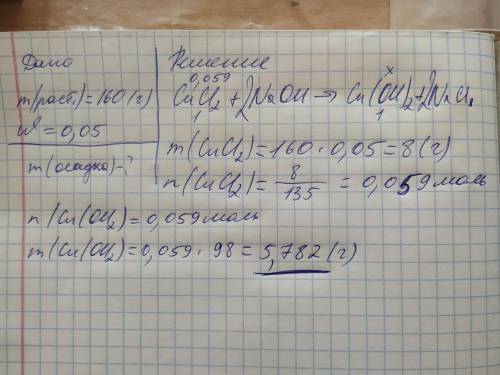 Дано
m(раст.)=160(г)
ω=0,05
m(осадка)-?
Решение
0,059 x
CuCl2+2NaOH→Cu(OH)2+2NaCl
1 1
m(CuCl2)=160·0,05=8(г)
n(CuCl2)=8/135=0,059моль
n(Cu(OH2)=0,059моль
m(Cu(OH2)=0,059·98=5,782(г)